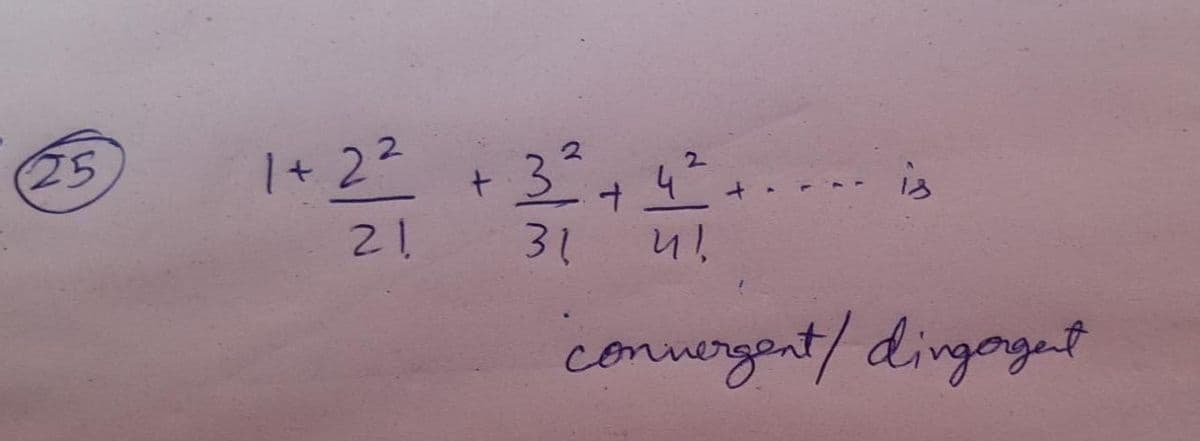 25 1 + 2²/2! + 3²/3! + 4²/4! + ..... is
convergent/ dingergent